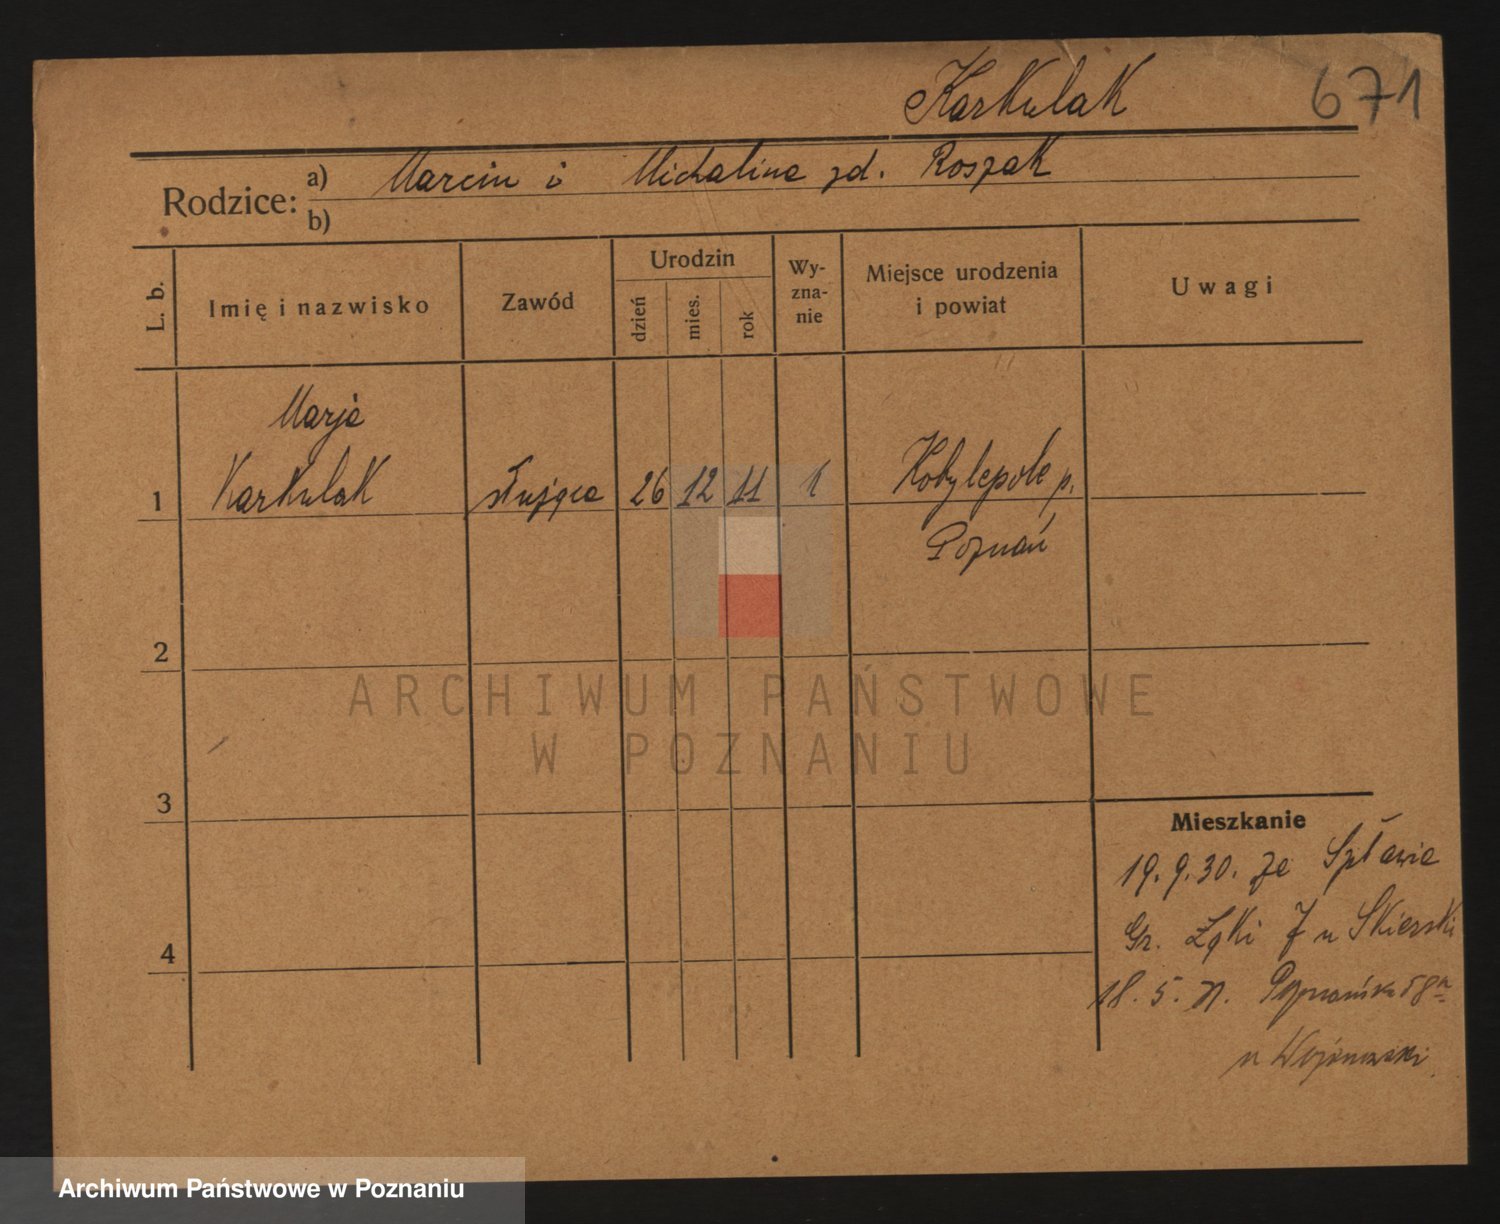 Karkulak 671
Rodzice: a) Marcin i Michalina zd. Roszak
b)
L. b.
Imię i nazwisko
Zawód
Urodzin
dzień
mies.
rok
Wy-
zna-
nie
Miejsce urodzenia
i powiat
Uwagi
Marja
1 Karkulak służąca 26 12 11 k Kobylepole p.
Poznań
2
3
4
Mieszkanie
19. 9. 30. ze Spławie
Gr. Łąki 7 u Skierski
18. 5. 31. Poznańska 58
u
ARCHIWUM PAŃSTWOWE
W POZNANIU
Archiwum Państwowe w Poznaniu